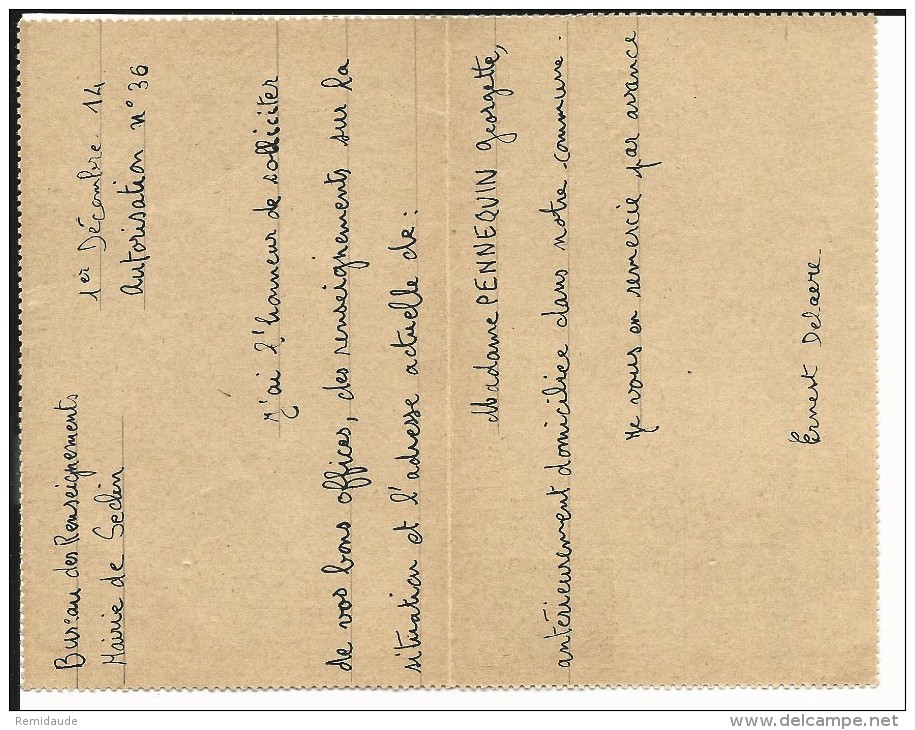 Bureau des Renseignements
Mairie de Seclin
1er Décembre 14
Autorisation n° 36
J'ai l'honneur de solliciter
de vos bons offices, des renseignements sur la
situation et l'adresse actuelle de:
Madame PENNEQUIN Georgette,
antérieurement domiciliée dans notre commune.
Je vous en remercie par avance
Ernest Delaere
Remidaude
www.delcampe.net